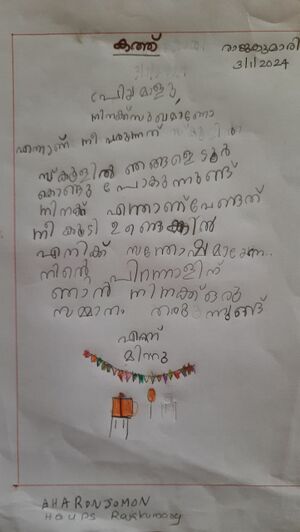 കത്ത്
രാജകുമാരി
3/1/2024
പ്രിയ മാളു,
നിനക്ക് സുഖമാണോ
എന്നാണ് നീ വരുന്നത്
സ്കൂളിൽ ഞങ്ങളെ ടൂർ
കൊണ്ടു പോകുന്നുണ്ട്
നിനക്ക് എന്താണ് വേണ്ടത്
നീ കൂടി ഉണ്ടെങ്കിൽ
എനിക്ക് സന്തോഷമാകും..
നിന്റെ പിറന്നാളിന്
ഞാൻ നിനക്ക് ഒരു
സമ്മാനം തരുന്നുണ്ട്
എന്ന്
മിന്നു
AHARON JOMON
HGUPS Rajakumary